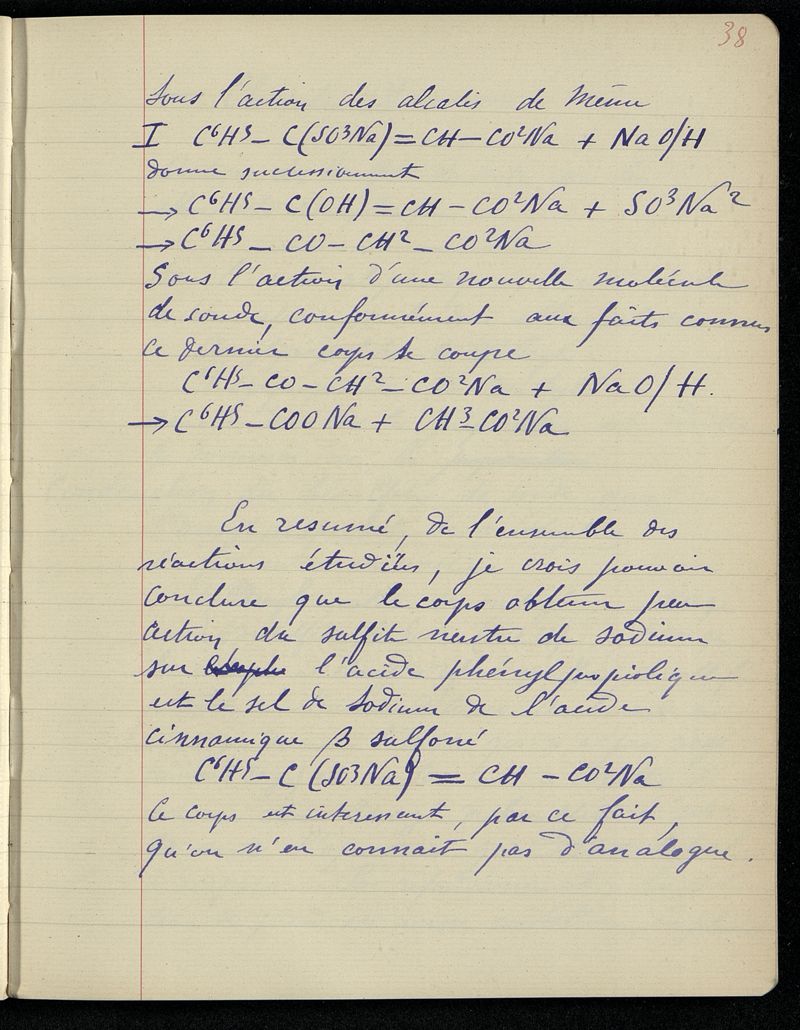 38
Sous l'action des alcalis de même
I C⁶H⁵ – C(SO³Na) = CH – CO²Na + NaO/H
donne successivement
→ C⁶H⁵ – C(OH) = CH – CO²Na + SO³Na²
→ C⁶H⁵ – CO – CH² – CO²Na
Sous l'action d'une nouvelle molécule
de soude, conformément aux faits connus
ce dernier corps se coupe
C⁶H⁵ – CO – CH² – CO²Na + NaO/H.
→ C⁶H⁵ – COONa + CH³ – CO²Na
En resumé, de l'ensemble des
réactions étudiées, je crois pouvoir
conclure que le corps obtenu par
action du sulfite neutre de sodium
sur l'acide phénylpropiolique
est le sel de sodium de l'acide
cinnamique β sulfoné
C⁶H⁵ – C (SO³Na) = CH – CO²Na
Ce corps est interessant, par ce fait,
qu'on n'en connait pas d'analogue.